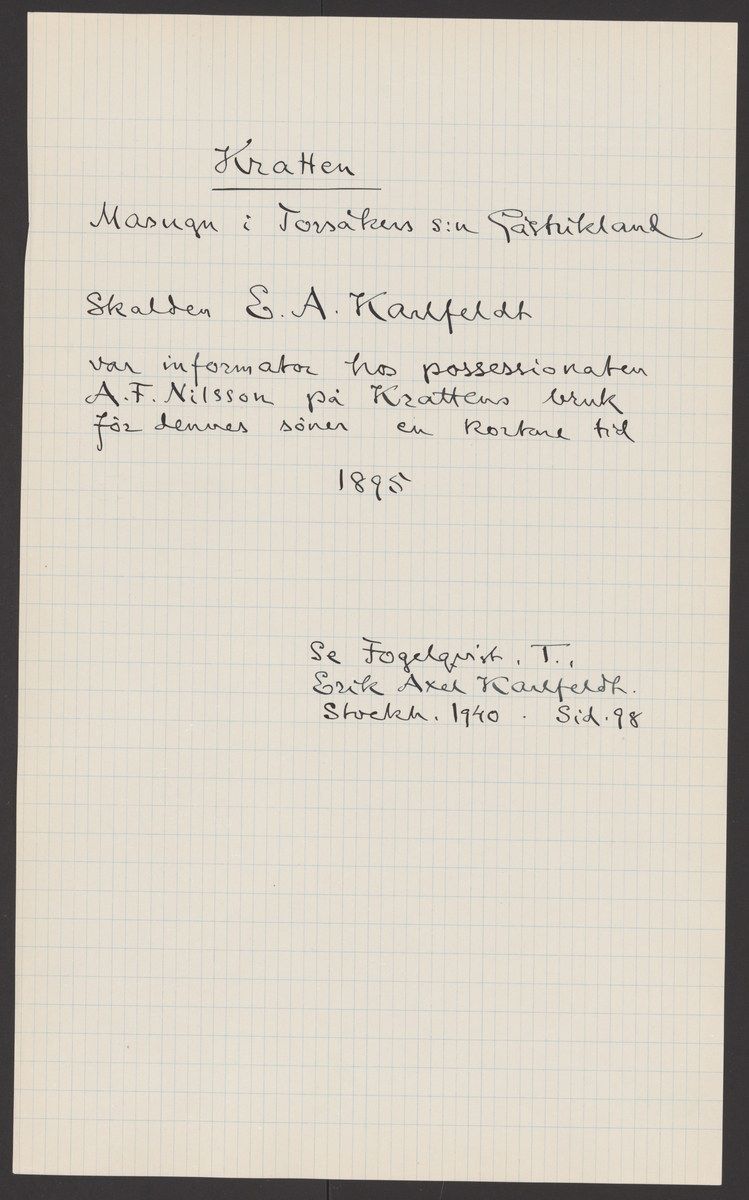 Kratten
Masugn i Torsåkers s:n Gästrikland
Skalden E. A. Karlfeldt
var informator hos possessionaten
A. F. Nilsson på Krattens bruk
för dennes söner en kortare tid
1895
Se Fogelqvist, T.,
Erik Axel Karlfeldt.
Stockh. 1940. Sid. 98